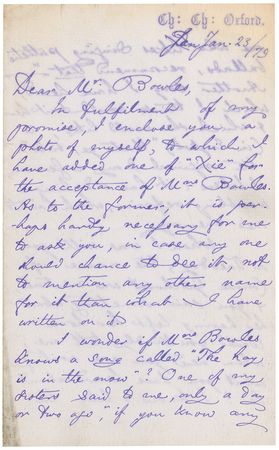 Ch: Ch: Oxford.
Jan. 23/79
Dear Mr. Bowles,
In fulfilment of my
promise, I enclose you a
photo of myself, to which I
have added one of "Xie" for
the acceptance of Mrs Bowles.
As to the former, it is per-
haps hardly necessary for me
to ask you, in case any one
should chance to see it, not
to mention any other name
for it than what I have
written on it.
I wonder if Mrs Bowles
knows a song called "The Kay
is in the mow"? One of my
sisters said to me, only a day
or two ago, "if you know any